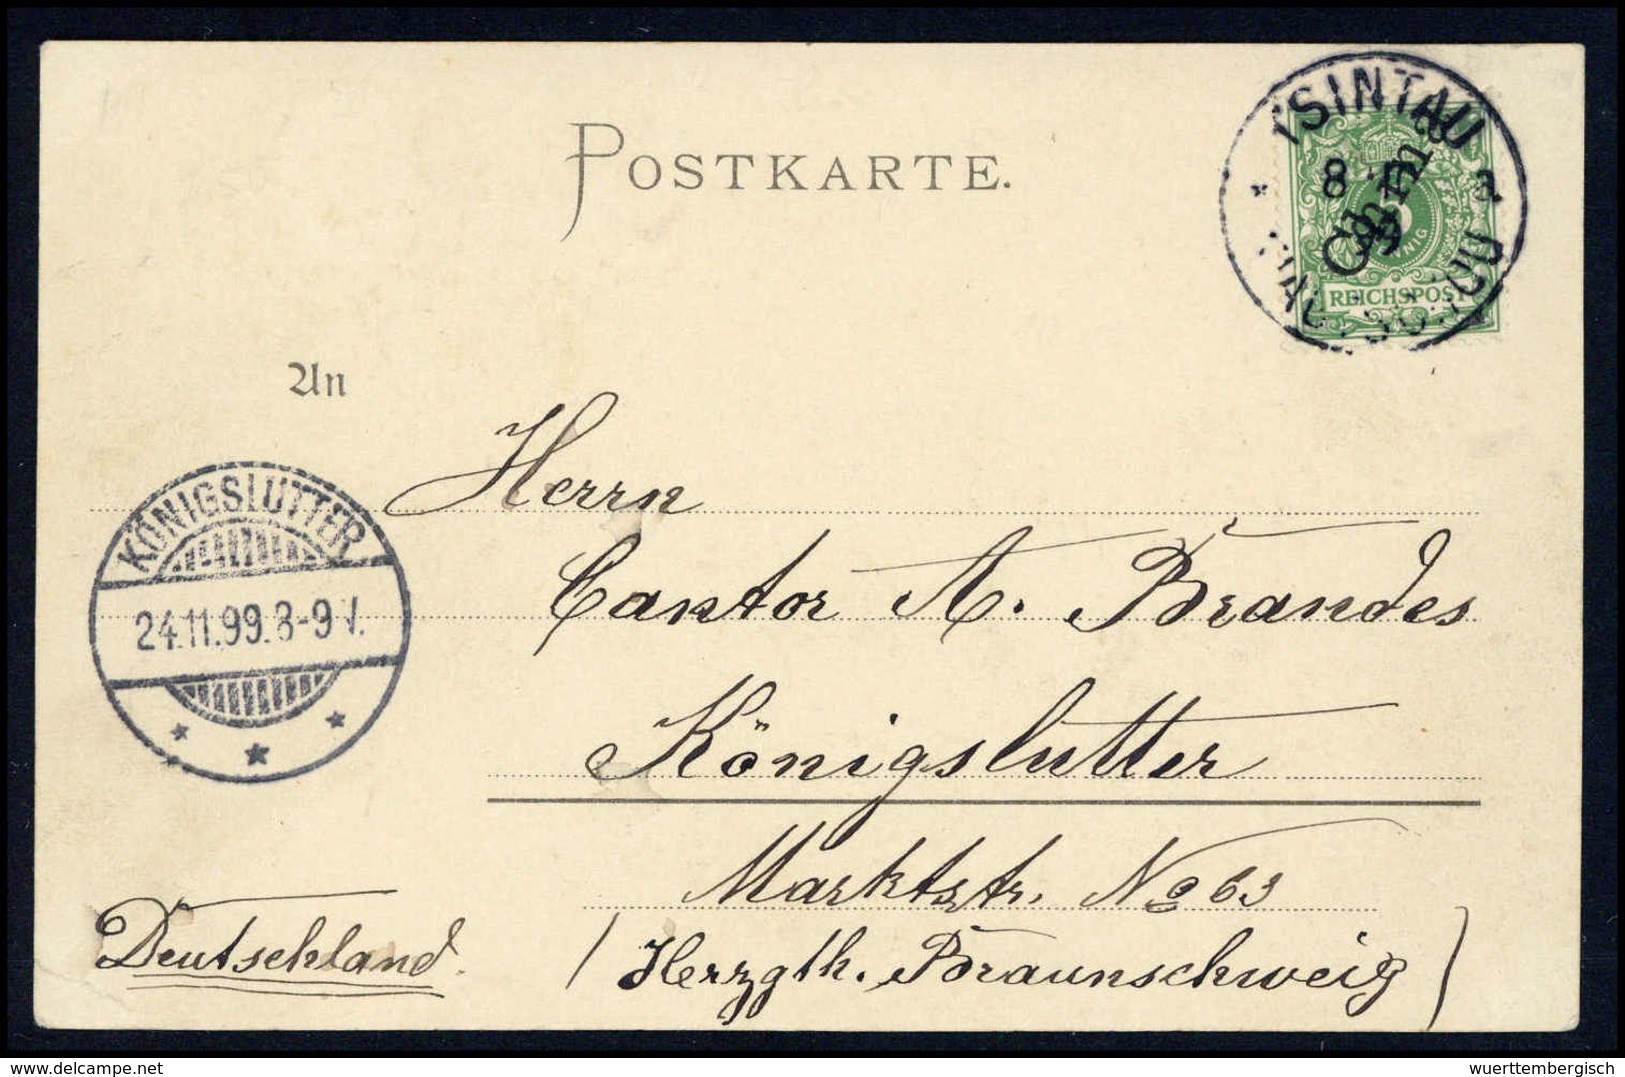 POSTKARTE.
TSINTAU
8
a
China
5
PFENNIG
REICHSPOST
KIAUTSCHOU
An
Herrn
Cantor A. Brandes
Königslutter
Marktstr. No 63
(Herzgth. Braunschweig)
Deutschland.
KÖNIGSLUTTER
24.11.99.8-9V.
delcampe.net
wuerttembergisch